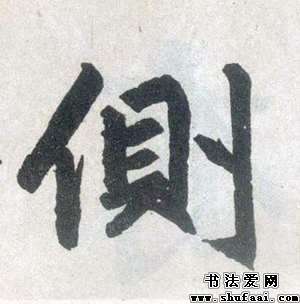 側
书法爱网
www.shufaai.com